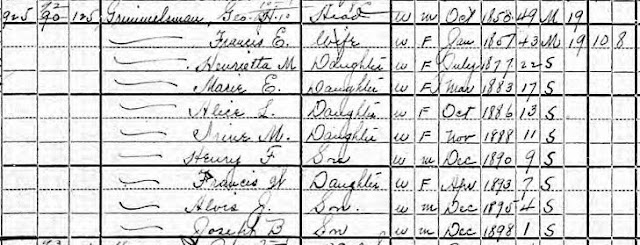 925 90 125 Grimmelsman, Geo. H. Head W M Oct 1850 49 M 19
Francis E. Wife W F Jan 1857 43 M 19 10 8
Henrietta M Daughter W F July 1877 22 S
Marie E. Daughter W F Mar 1883 17 S
Alice L. Daughter W F Oct 1886 13 S
Irine M. Daughter W F Nov 1888 11 S
Henry F Son W M Dec 1890 9 S
Francis W Daughter W F Apr 1893 7 S
Alvis J. Son. W M Dec 1895 4 S
Joseph B Son W M Dec 1898 1 S